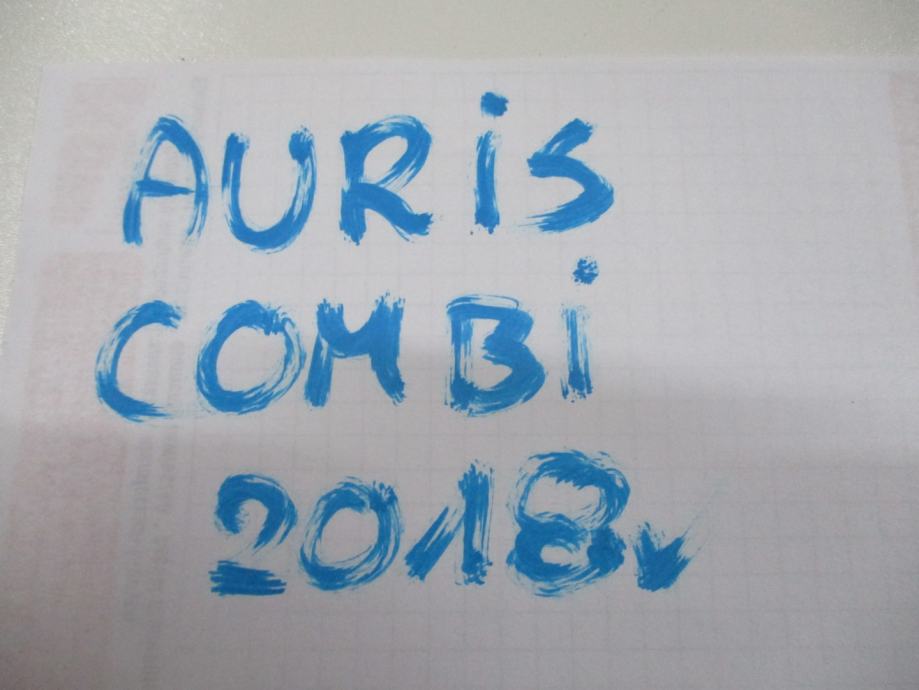 AURiS
COMBi
2018v